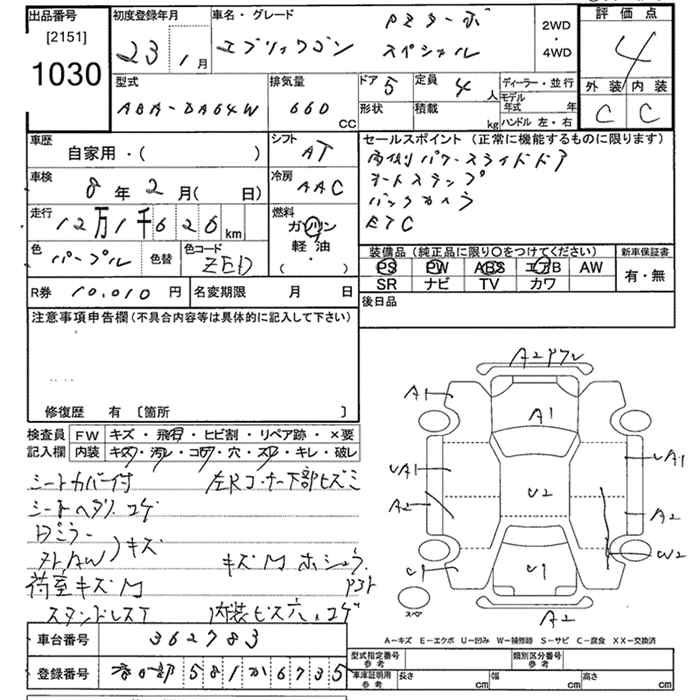 出品番号 [2151] 1030
初度登録年月 23 1月
車名・グレード エブリィワゴン PZターボスペシャル
2WD・4WD
評価点 4
外装 C 内装 C
型式 ABA-DA64W
排気量 660 CC
ドア 5 定員 4人
形状 積載 kg
ディーラー・並行
モデル年式 年
ハンドル 左・右
車歴 自家用・( )
シフト AT
セールスポイント(正常に機能するものに限ります)
両側パワースライドドア
オートステップ
バックカメラ
ETC
車検 8年2月( 日)
冷房 AAC
走行 12万1千626km
燃料 ガソリン 軽油 ( ・ )
色 パープル 色替 色コード ZED
装備品(純正品に限り○をつけてください)
PS PW ABS エアB AW
SR ナビ TV カワ
新車保証書 有・無
R券 10,010円 名変期限 月 日
後日品
注意事項申告欄(不具合内容等は具体的に記入して下さい)
修復歴 有 [箇所 ]
検査員記入欄 FW キズ・飛石・ヒビ割・リペア跡・×要
内装 キズ・汚レ・コゲ・穴・スレ・キレ・破レ
シートカバー付 左Rコーナー下部ヒズミ
シートヘタリ コゲ
Rミラー
アトAW)キズ キズM ホシュウ
荷室キズM アト
スタンドレステ 内装ビス穴、コゲ
車台番号 362783
登録番号 581 6735
A2ワレ
A1 A1
UA1 UA1
U2
A2 A2
W2
U1 U1
スペア
A2
A-キズ E-エクボ U-凹み W-補修跡 S-サビ C-腐食 XX-交換済
型式指定番号 参考 類別区分番号 参考
車庫証明用 参考 長さ cm 幅 cm 高さ cm